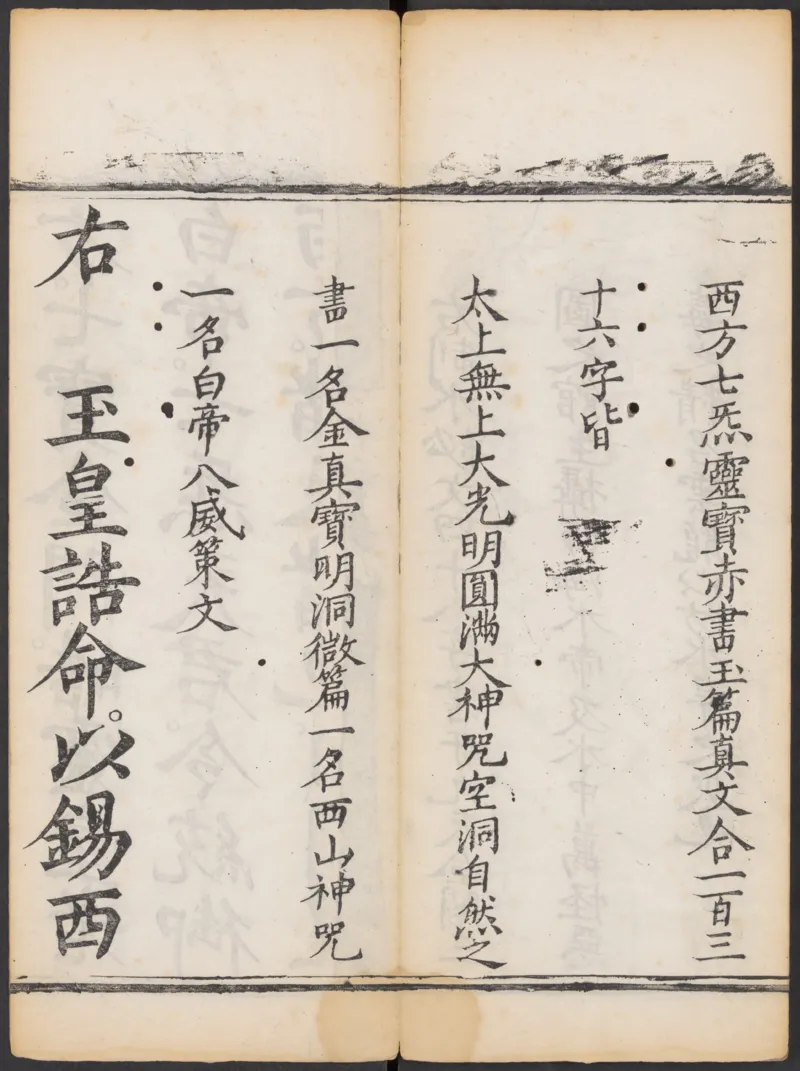 西方七炁靈寳赤書玉篇真文合一百三
十六字皆
太上無上大光明圓滿大神咒空洞自然之
書一名金真寳明洞微篇一名西山神咒
一名白帝八威策文
右 玉皇誥命。以錫西